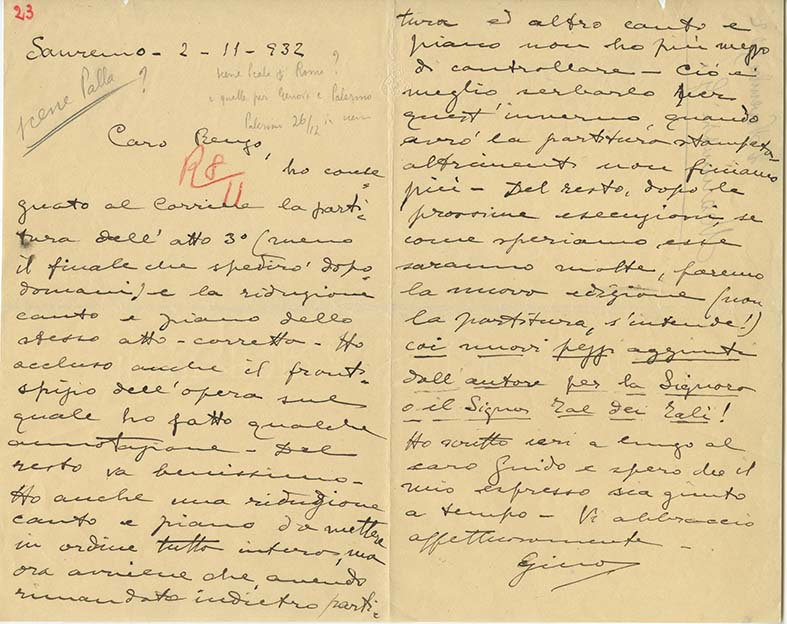 23
Sanremo - 2 - 11 - 932
scene Palla ?
scene Reale di Roma ?
e quelle per Genova e Palermo
Palermo 26/12 in scena
Caro Renzo,
R 8/11
ho conse=
gnato al Corriere la parti=
tura dell'atto 3° (meno
il finale che spedirò dopo
domani) e la riduzione
canto e piano dello
stesso atto - corretto - Ho
accluso anche il front=
spizio dell'opera sul
quale ho fatto qualche
annotazione - Del
resto va benissimo -
Ho anche una riduzione
canto e piano da mettere
in ordine tutto intero, ma
ora avviene che, avendo
rimandato indietro parti=
tura ed altro canto e
piano non ho più mezzo
di controllare - Ciò è
meglio serbarlo per
quest'inverno, quando
avrò la partitura stampata -
altrimenti non finiamo
più - Del resto, dopo le
prossime esecuzioni, se
come speriamo, esse
saranno molte, faremo
la nuova edizione (non
la partitura, s'intende!)
coi nuovi pezzi aggiunti
dall'autore per la Signora
o il Signor Tal dei Tali!
Ho scritto ieri a lungo al
caro Guido e spero che il
mio espresso sia giunto
a tempo - Vi abbraccio
affettuosamente -
Gino